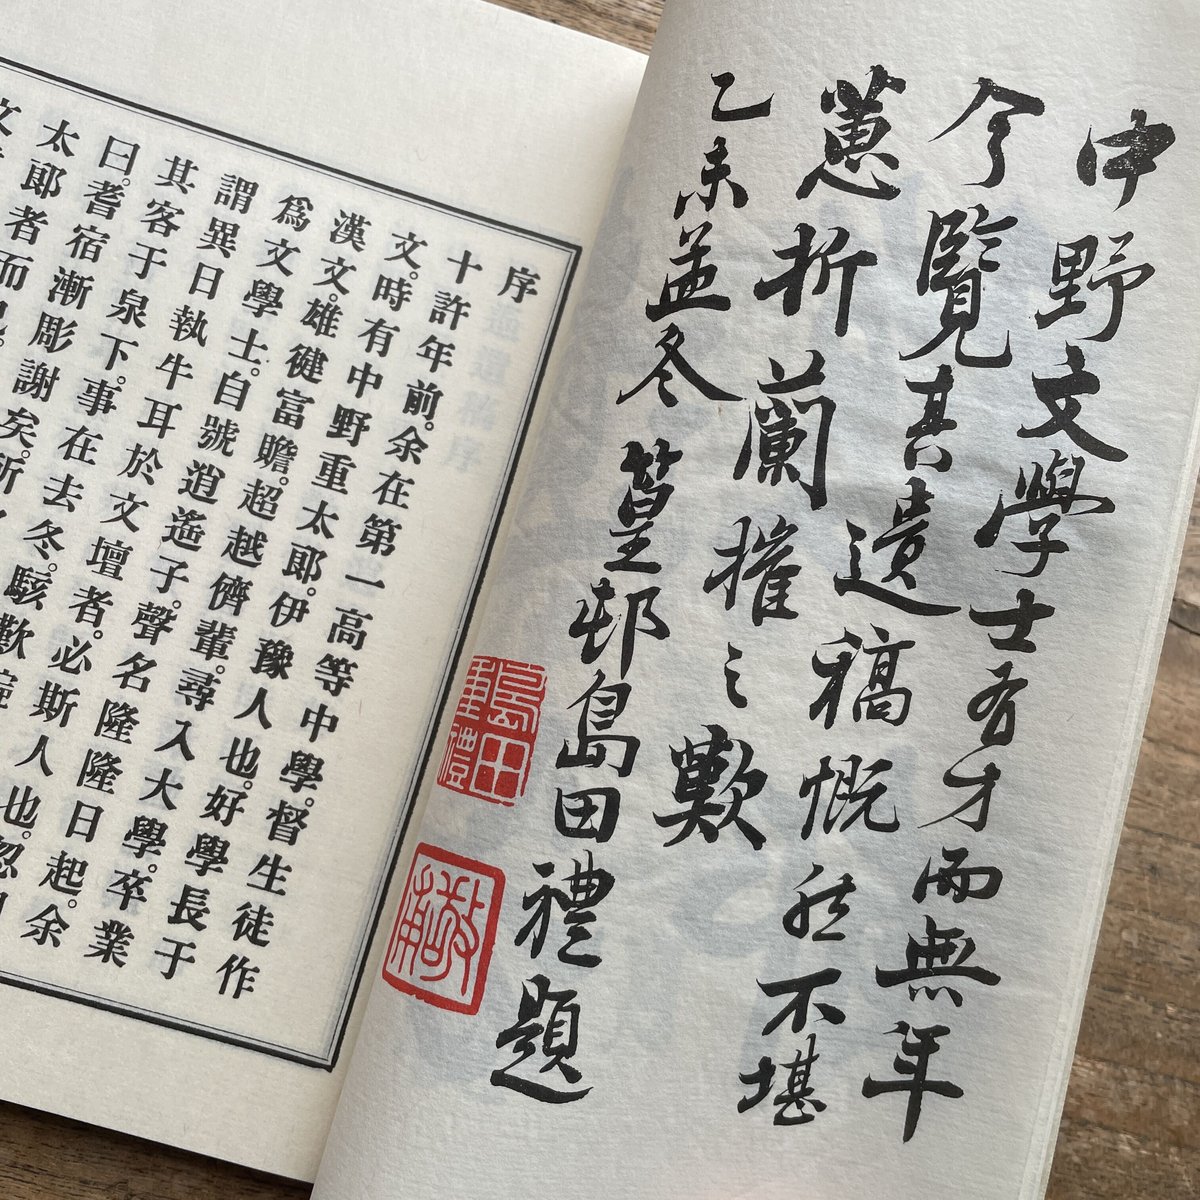 中野文學士有才而無年
今覽其遺稿慨然不堪
蕙折蘭摧之歎
乙未孟冬 篁邨島田禮題
島田重禮
敬甫
序
十許年前。余在第一高等中學。督生徒作
文。時有中野重太郎。伊豫人也。好學長于
漢文。雄健富贍。超越儕輩。尋入大學。卒業
爲文學士。自號逍遙子。聲名隆隆日起。余
謂異日執牛耳於文壇者。必斯人也。忽
其客于泉下。事在去冬。駭歎
曰。耆宿漸彫謝矣。所
太郎者而已。
文